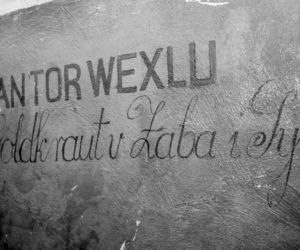 ANTOR WEXLU
oldkraut v Żaba i Sy